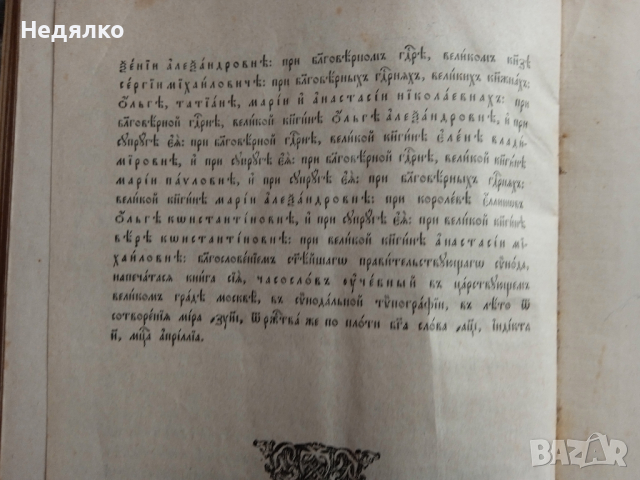 Недялко
ѯеніи алеѯандровнѣ: при бл҃говѣрномъ гдⷭ҇рѣ, великомъ кнѧ҃зѣ
сергіи міхаиловичѣ: при бл҃говѣрныхъ гдⷭ҇рнѧхъ, великихъ кнѧжнахъ:
ѻльгѣ, татіанѣ, маріи и҆ анастасіи нїколаевнахъ: при
благовѣрной гдⷭ҇рнѣ, великой кн҃гинѣ ѻльгѣ алеѯандровнѣ, и҆ при
супругѣ є҆ѧ̀: при бл҃говѣрной гдⷭ҇рнѣ, великой кн҃гинѣ є҆ленѣ влади-
міровнѣ, и҆ при супругѣ є҆ѧ̀: при бл҃говѣрной гдⷭ҇рнѣ, великой кн҃гинѣ
маріи паѵловнѣ, и҆ при супругѣ є҆ѧ̀: при бл҃говѣрныхъ гдⷭ҇рнѧхъ:
великой кн҃гинѣ маріи алеѯандровнѣ: при королевѣ є҆ллиновъ
ѻльгѣ кѡнстантіновнѣ, и҆ при супругѣ є҆ѧ̀: при великой кн҃гинѣ
вѣрѣ кѡнстантіновнѣ: при великой кн҃гинѣ анастасіи мі-
хаиловнѣ: благословеніемъ ст҃ѣйшагѡ правительствующагѡ сѵнода,
напечатасѧ книга сіѧ, часословъ ᲂучебный въ царствующемъ
великомъ градѣ москвѣ, въ сѵнодальной тѵпографіи, въ лѣто ѿ
сотворенія міра ҂зуи҃і, ѿ ржⷭ҇тва же по плоти бг҃а слова ҂аци҃, індікта
и҃, мцⷭ҇а апрілліа.
BAZAR